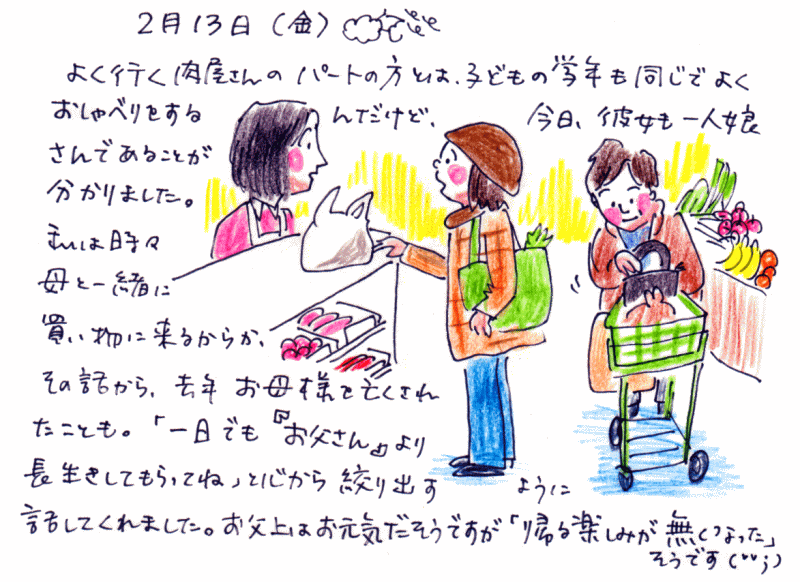 2月13日(金)
よく行く肉屋さんのパートの方とは、子どもの学年も同じでよく
おしゃべりをするんだけど、今日、彼女も一人娘
さんであることが
分かりました。
私は時々
母と一緒に
買い物に来るからか、
その話から、去年お母様を亡くされ
たことも。「一日でも『お父さん』より
長生きしてもらってね」と心から絞り出すように
話してくれました。お父上はお元気だそうですが「帰る楽しみが無くなった」
そうです(‥;)